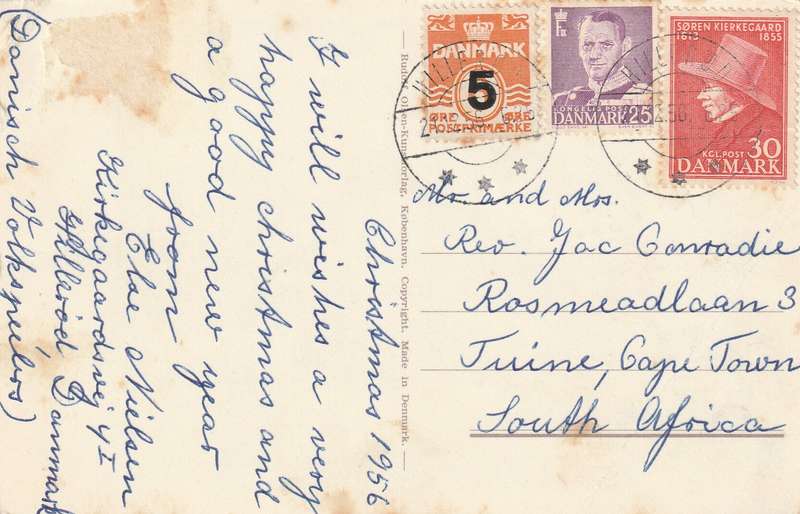 Christmas 1956
I will wishes a very
happy christmas and
a good new year
from
Else Nielsen
Kirkegaardsvej 4I
Hillerød Danmark
(Danisch Volkspeulos)
København. Copyright. Made in Denmark.
DANMARK
5
ØRE ØRE
POSTFRIMÆRKE
KONGELIG POST
DANMARK 25
SØREN KIERKEGAARD
1813 1855
30
KGL. POST
DANMARK
Mr. and Mrs.
Rev. Jac Conradie
Rosmeadlaan 3
Tuine, Cape Town
South Africa